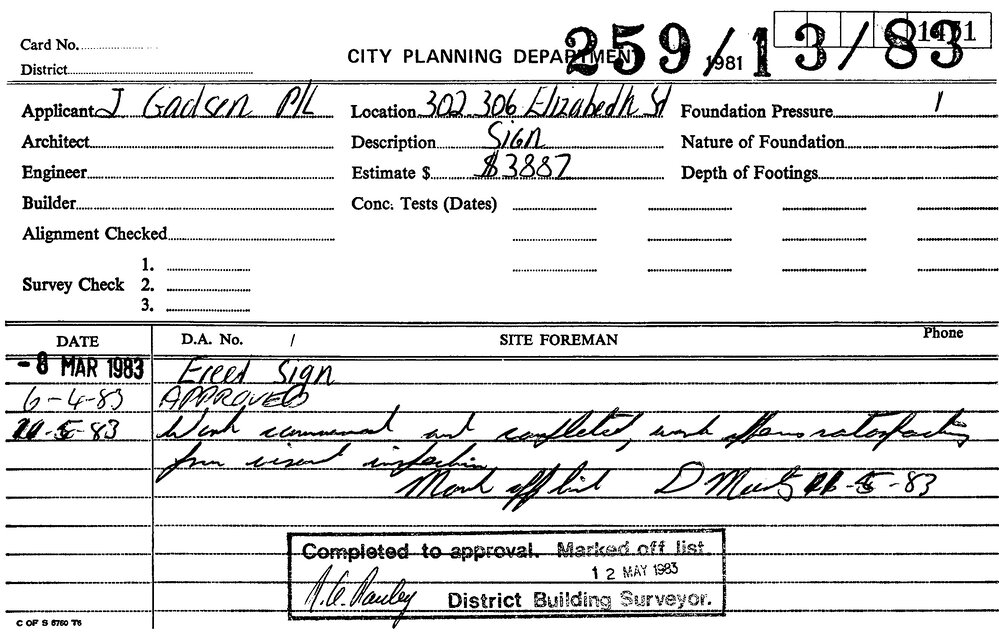 Card No.
District
CITY PLANNING DEPARTMENT
259/13/83
1981
1451
Applicant J Gadsen P/L
Location 302 306 Elizabeth St
Foundation Pressure
Architect
Description Sign
Nature of Foundation
Engineer
Estimate $ $3887
Depth of Footings
Builder
Conc. Tests (Dates)
Alignment Checked
Survey Check
1.
2.
3.
DATE D.A. No. / SITE FOREMAN Phone
- 8 MAR 1983 Erect Sign
6-4-83 APPROVED
11-5-83 Work commenced and completed, work appears satisfactory
from visual inspection
Mark off list D 11-5-83
Completed to approval. Marked off list.
12 MAY 1983
District Building Surveyor.
C OF S 6760 T6